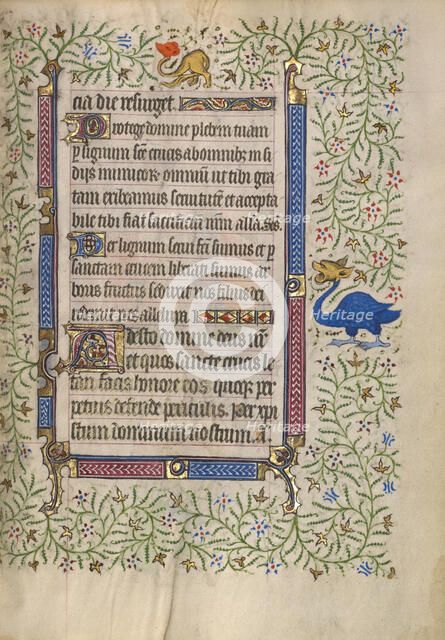 cia die resurget.
Protege domine plebem tuam
per lignum sancte crucis ab omnibus in si
dijs inimicorum omnium ut tibi gra
tam exibeamus servitutem et accepta
bile tibi fiat sacrificium nostrum alla. vs.
Per lignum servi facti sumus et per
sanctam crucem liberati sumus ar
boris fructus seduxit nos filius dei
redemit nos alleluia.
Adesto domine deus noster
et quos sancte crucis le
tari facis honore eos quoque per
petuis defende periculis. Per xpi
stum dominum nostrum. a
Heritage
Heritage
Heritage
Heritage